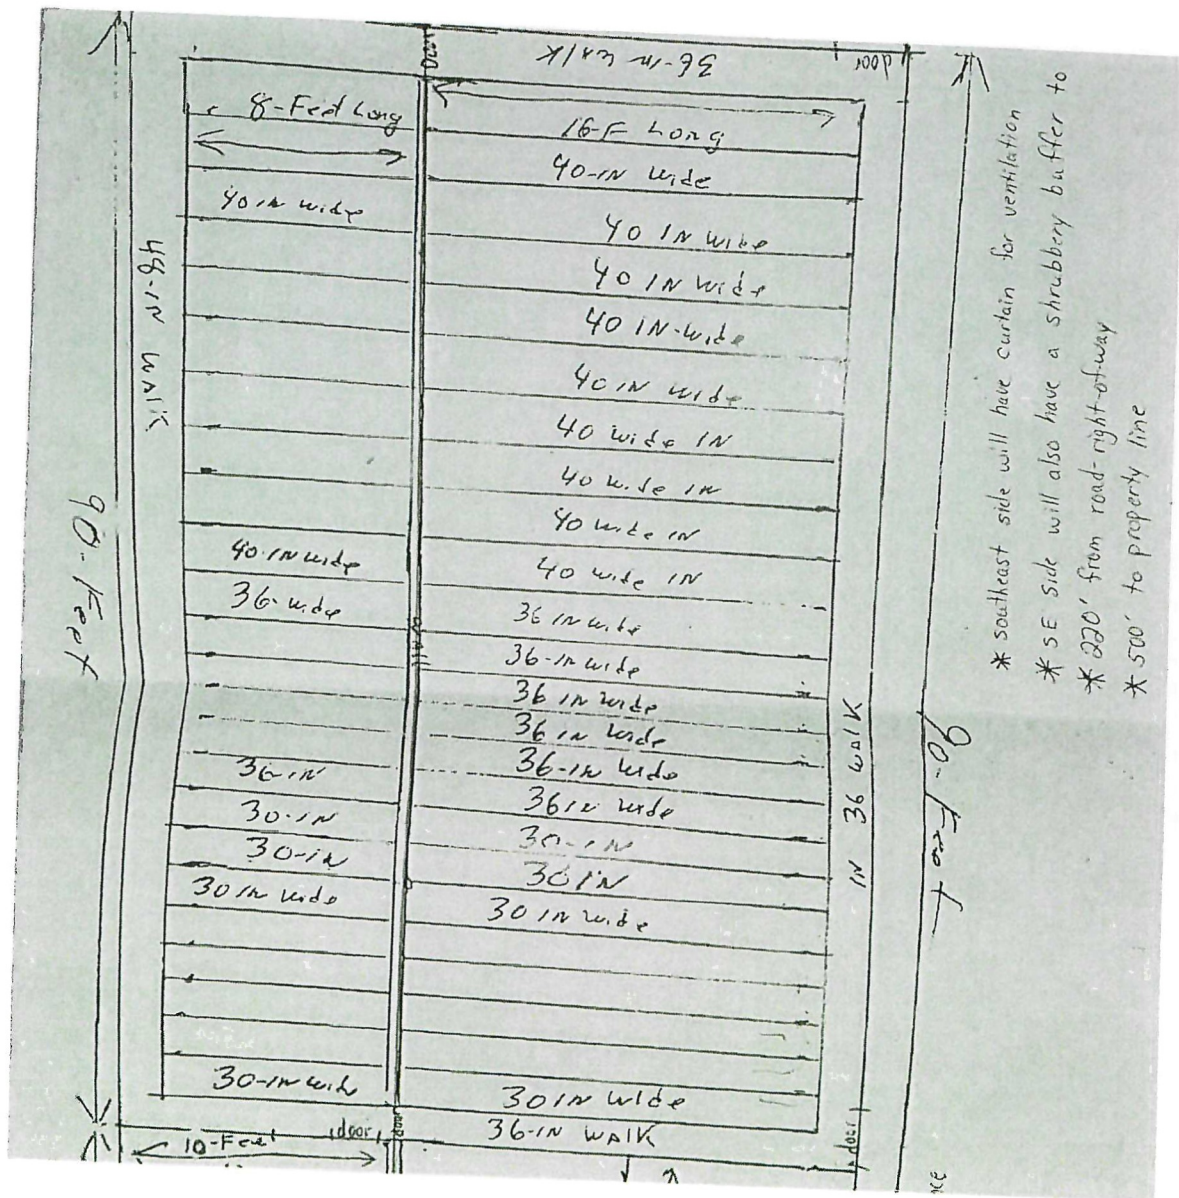 door
36-IN WALK
door
8-Feet Long
16-F Long
40-IN Wide
40 IN wide
40 IN wide
40 IN wide
40 IN-wide
40 IN wide
40 wide IN
40 wide IN
40 wide IN
40-IN wide
40 wide IN
36-wide
36 IN wide
36-IN wide
36 IN wide
36 IN wide
36-IN
36-IN wide
36 IN wide
30-IN
30-IN
30-IN
30 IN
30 IN wide
30 IN wide
30-IN wide
30 IN wide
36-IN WALK
10-Feet
door
door
door
48-IN WALK
90-Feet
IN 36 WALK
90-Feet
* Southeast side will have curtain for ventilation
* SE side will also have a shrubbery buffer to
* 220' from road-right-of-way
* 500' to property line